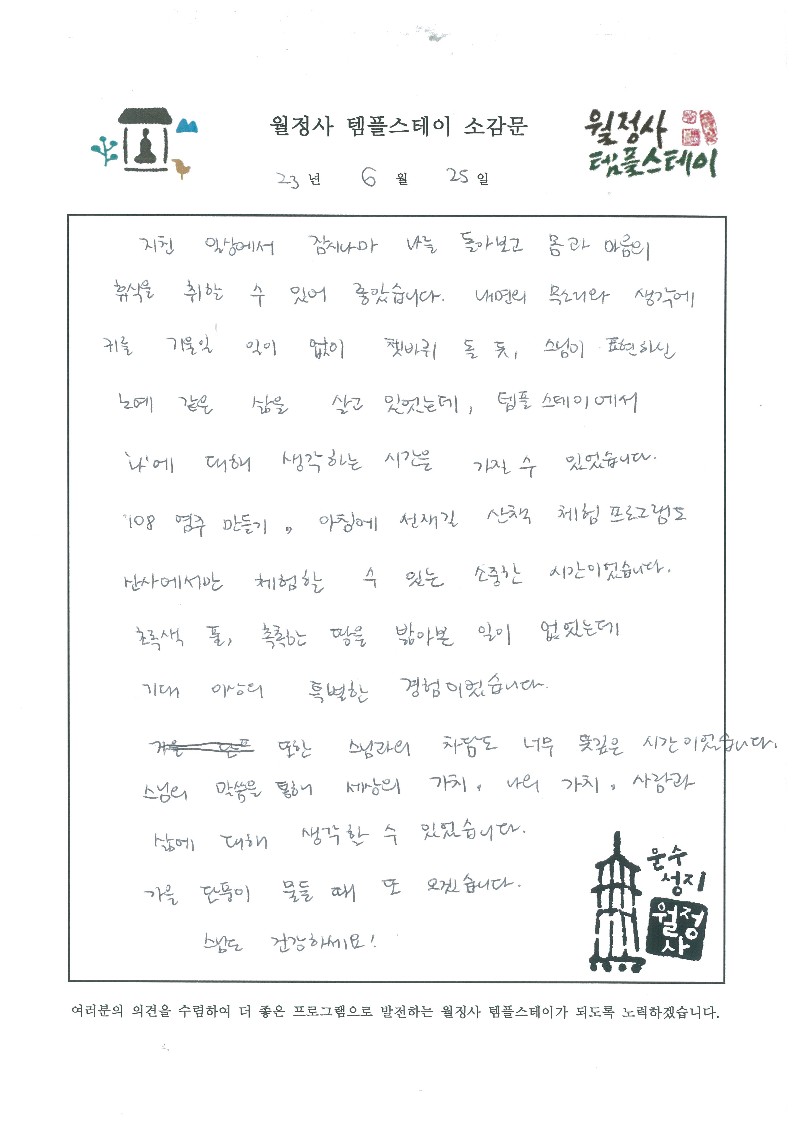 월정사 템플스테이 소감문
월정사
템플스테이
23년 6월 25일
지친 일상에서 잠시나마 나를 돌아보고 몸과 마음의
휴식을 취할 수 있어 좋았습니다. 내면의 목소리와 생각에
귀를 기울일 일이 없이 쳇바퀴 돌 듯, 스님이 표현하신
노예 같은 삶을 살고 있었는데, 템플스테이에서
'나'에 대해 생각하는 시간을 가질 수 있었습니다.
108 염주 만들기, 아침에 선재길 산책 체험 프로그램도
산사에서만 체험할 수 있는 소중한 시간이었습니다.
초록색 풀, 촉촉한 땅을 밟아본 일이 없었는데
기대 이상의 특별한 경험이었습니다.
또한 스님과의 차담도 너무 뜻깊은 시간이었습니다.
스님의 말씀을 통해 세상의 가치, 나의 가치, 사람과
삶에 대해 생각할 수 있었습니다.
가을 단풍이 물들 때 또 오겠습니다.
스님도 건강하세요!
문수
성지
월정
사
여러분의 의견을 수렴하여 더 좋은 프로그램으로 발전하는 월정사 템플스테이가 되도록 노력하겠습니다.